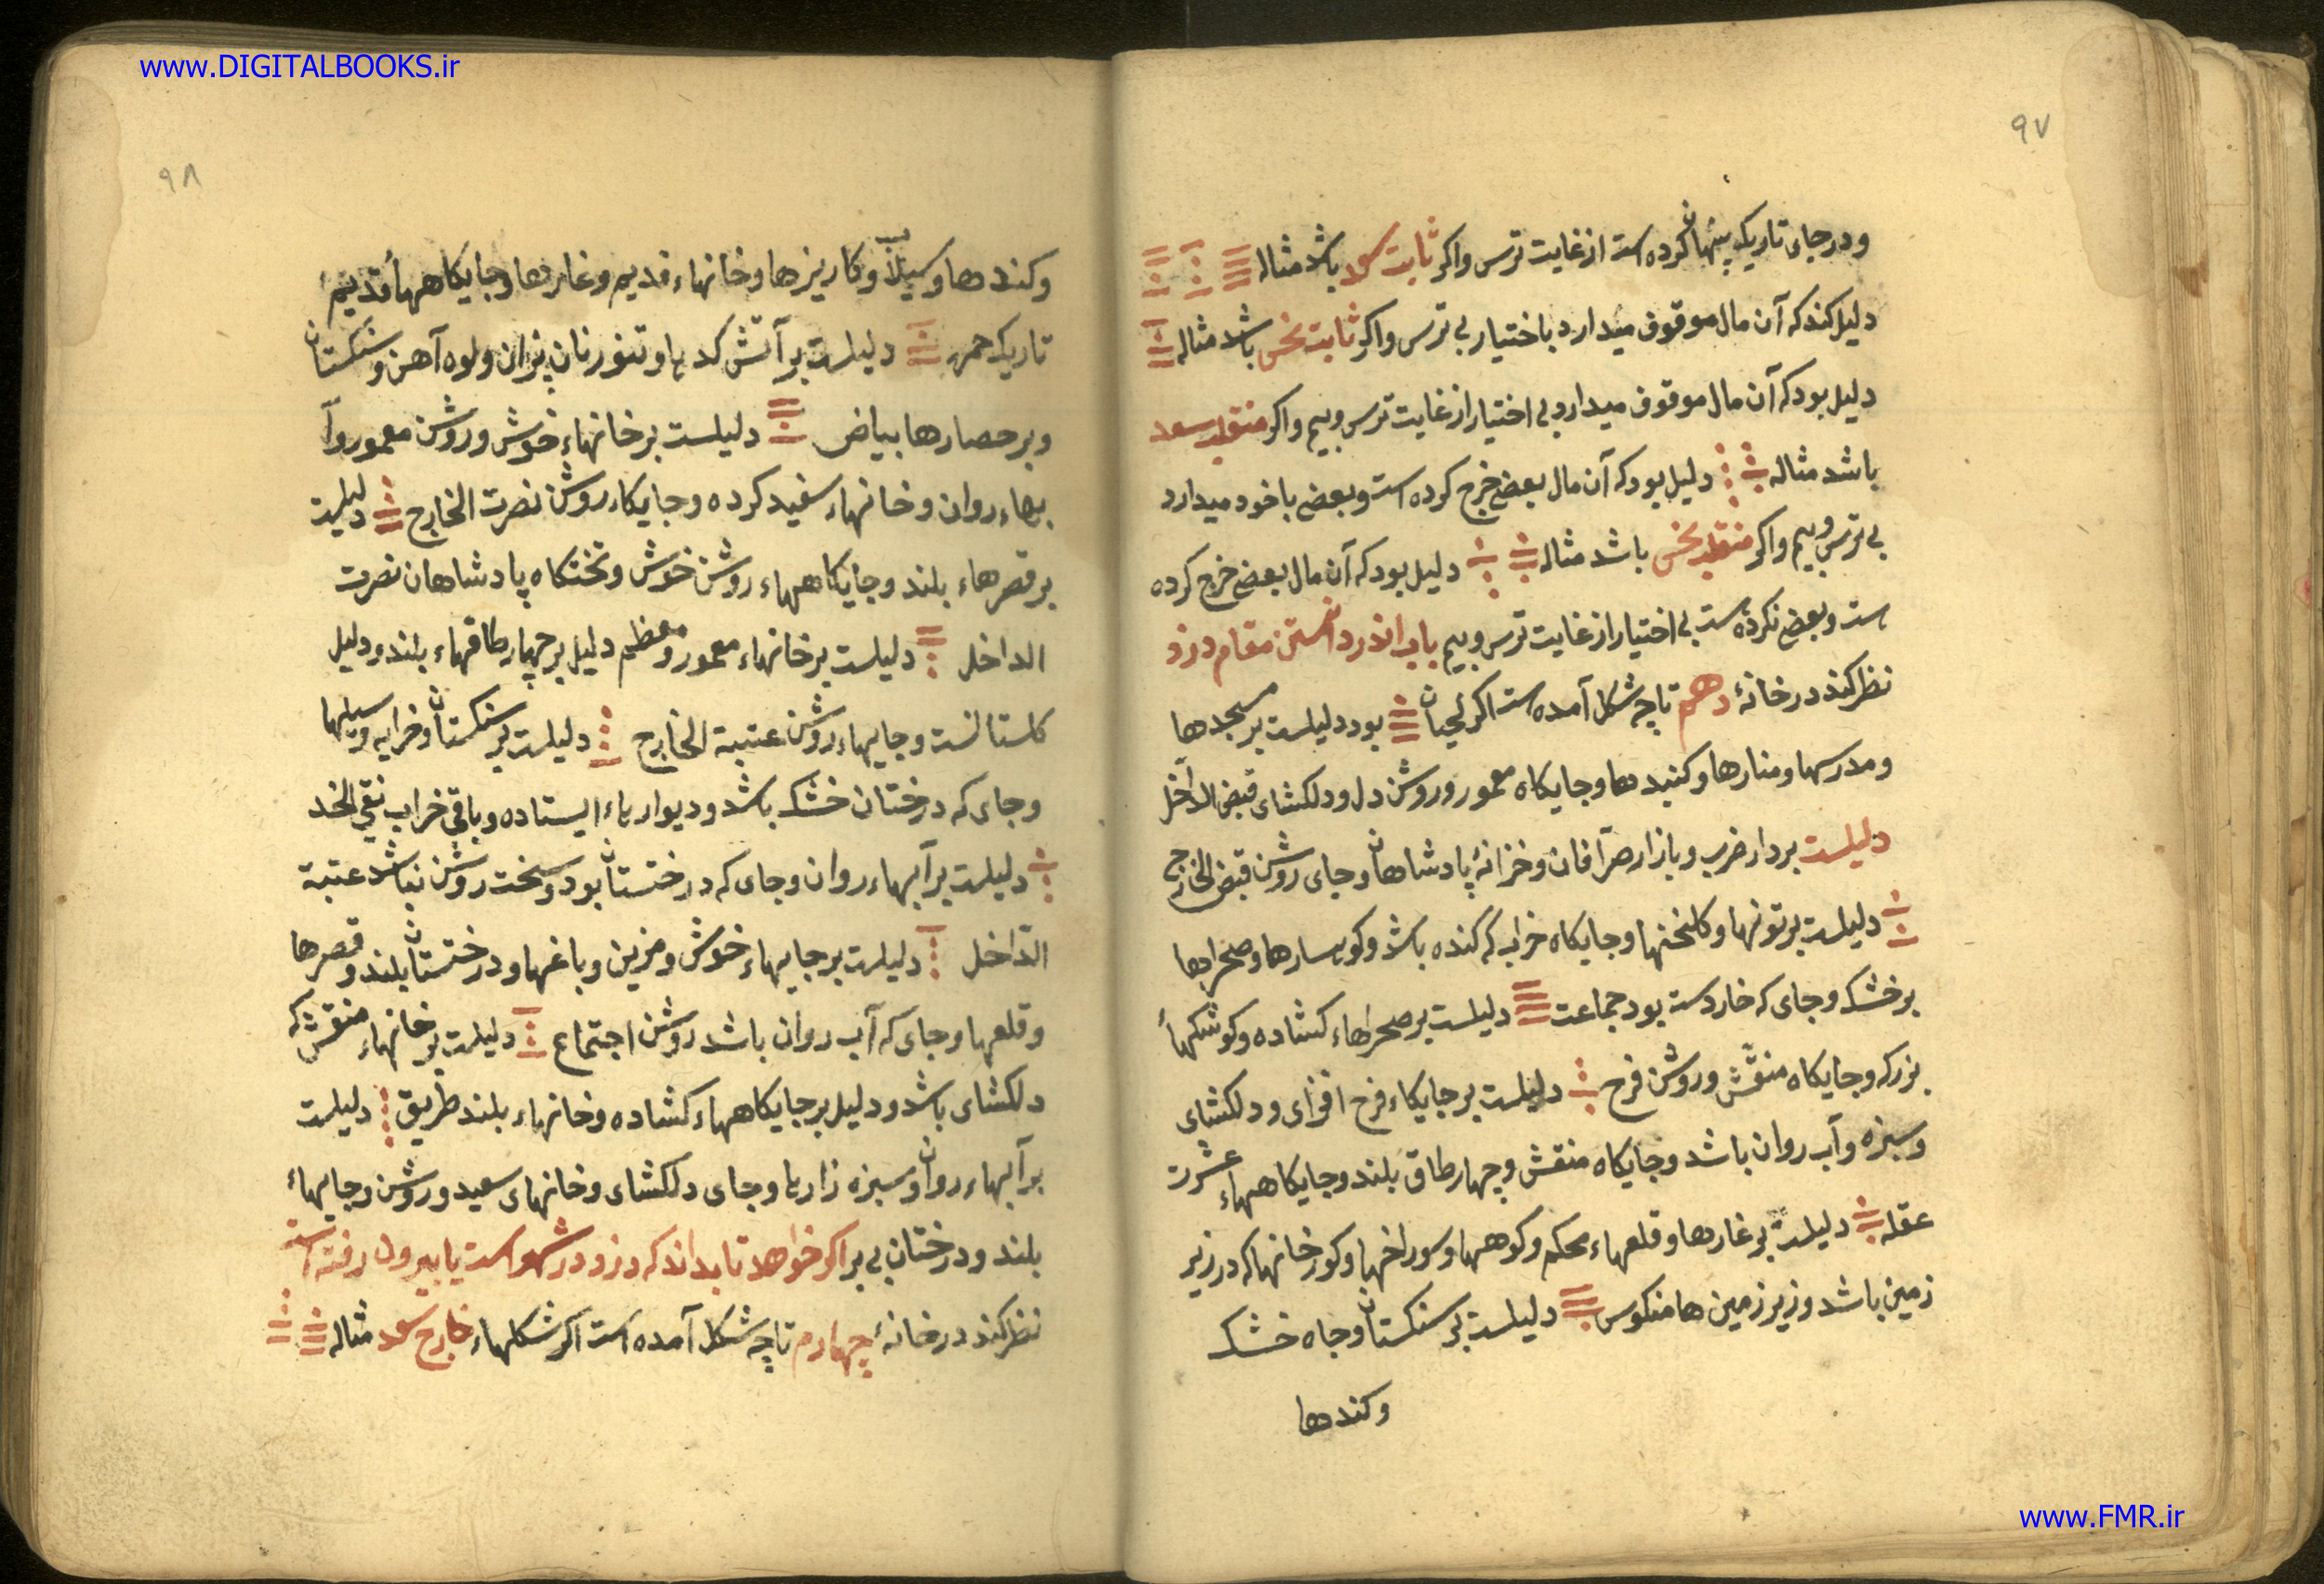 www.DIGITALBOOKS.ir
٩٧
و در جای تاریک پنهان کرده است از غایت ترس و اکر ثابت سعد باشد مثاله
دلیل کند که آن مال موقوف میدارد باختیار بی ترس و اکر ثابت نحس باشد مثاله
دلیل بود که آن مال موقوف میدارد بی اختیار از غایت ترس و بیم و اکر منقلب سعد
باشد مثاله دلیل بود که آن مال بعضی خرج کرده است و بعضی با خود میدارد
بی ترس و بیم و اکر منقلب نحس باشد مثاله دلیل بود که آن مال بعضی خرج کرده
ست و بعضی نکرده ست بی اختیار از غایت ترس و بیم باب اندر دانستن مقام دزد
نظر کند در خانهٔ دهم تا چه شکل آمده ست اکر لحیان بود دلیلست بر مسجدها
و مدرسها و منارها و کنبدها و جایکاه معمور و روشن دل و دلکشای قبض الداخل
دلیلست بر دار ضرب و بازار صرّافان و خزانهٔ پادشاهان و جای روشن قبض الخارج
دلیلست بر تونها و کلخنها و جایکاه خراب که کنده باشد و کوهسارها و صحراها
بر خشک و جای که خاردست بود جماعت دلیلست بر صحراهاء کشاده و کوشکهأ
بزرک و جایکاه منقّش و روشن فرح دلیلست بر جایکاء فرح افزای و دلکشای
و سبزه و آب روان باشد و جایکاه منقش و چهار طاق بلند و جایکاههاء عشرت
عقله دلیلست بر غارها و قلعهاء محکم و کوهها و سوراخها و کورخانها که در زیر
زمین باشد و زیر زمین ها منکوس دلیلست بر سنکستان و جاه خشک
و کندها
٩٨
و کندها و سیلاب و کاریزها و خانهاء قدیم و غارها و جایکاههأ قدیم
تاریک حمره دلیلست بر آتش کدها و تنور نان پزان و لوه آهن و سنکستان
و بر حصارها بیاض دلیلست بر خانهاء خوش و روشن معمور و آ
بهاء روان و خانهاء سفید کرده و جایکاء روشن نصرت الخارج دلیلست
بر قصرهاء بلند و جایکاههاء روشن خوش و تختکاه پادشاهان نصرت
الداخل دلیلست بر خانهاء معمور و معظم دلیل بر چهار طاقهاء بلند و دلیل
کلستانست و جایهاء روشن عتبة الخارج دلیلست بر سنکستان و خرابه و سیلها
و جای که درختان خشک باشد و دیوارهاء ایستاده و باقی خراب نقی الخد
دلیلست بر آبهاء روان و جای که درختستان بود و سخت روشن نباشد عتبة
الدّاخل دلیلست بر جایهاء خوش و مزین و باغها و درختستان بلند و قصرها
و قلعها و جای که آب روان باشد روشن اجتماع دلیلست بر خانهاء منقش که
دلکشای باشد و دلیل بر جایکاههاء کشاده و خانهاء بلند طریق دلیلست
بر آبهاء روان و سبزه زارها و جای دلکشای و خانهای سعید و روشن و جایهاء
بلند و درختان بی بر اکر خواهد تا بداند که دزد در شهر است یا بیرون رفته است
نظر کند در خانهٔ چهارم تا چه شکل آمده است اکر شکلهاء خارج سعد مثاله
www.FMR.ir